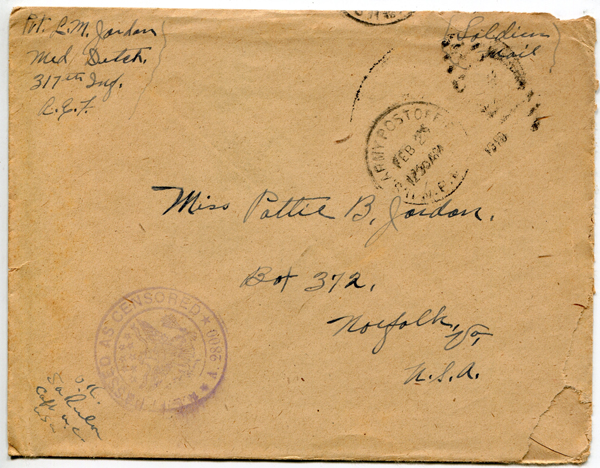 Pvt. L. M. Jordan
Med. Detch.
317th Inf.
A.E.F.
Soldiers
Mail
ARMY POST OFFI
FEB 25
1919
Miss Pattie B. Jordan.
Box 372,
Norfolk, Va,
U.S.A.
PASSED AS CENSORED
O.K.